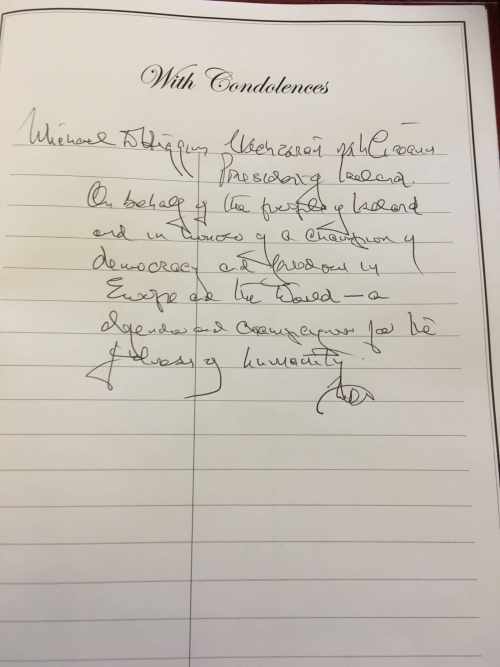 With Condolences
Michael D Higgins Uachtarán na hÉireann
President of Ireland.
On behalf of the people of Ireland
and in honour of a champion of
democracy and freedom in
Europe and the World – a
defender and campaigner for the
fullness of humanity.